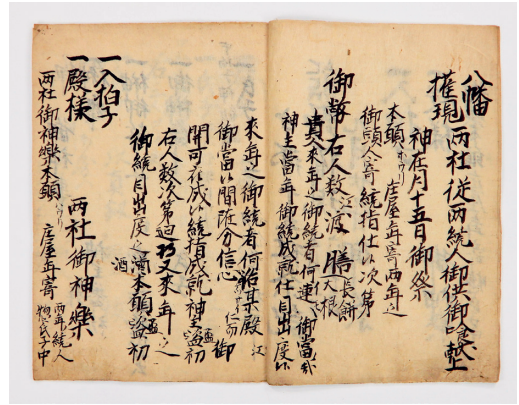 八幡
権現 両社従両統人御供御喰整上
神在月十五日御祭
本頭 庄屋年寄両年之
御頭人寄統指仕以次第
御幣 右人数江渡 膳 長餅 大根
貴人来年之御統者何連
神主當年御統成就仕目出度
来年之御統者何治某殿江
御當以間随分信心 御
開可在成以統指成就神主盃初
右人数次第迫 又来年之
御統目出度之 酒 本頭盃初
一入柏子 両社御神樂
一殿様
両社御神樂本頭 庄屋年寄 両年統人 惣氏子中